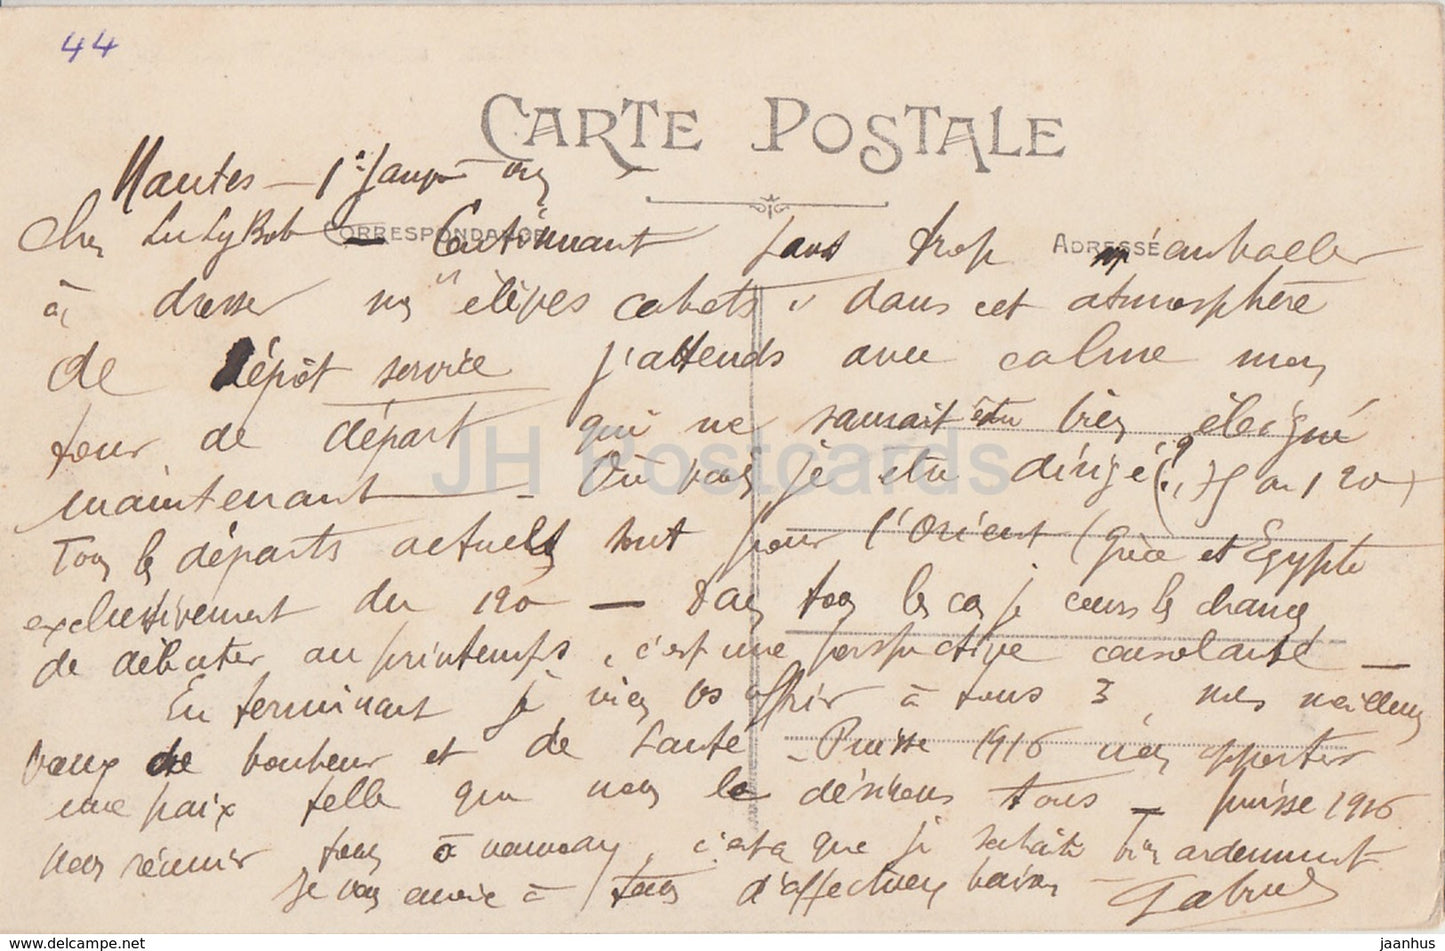 44
CARTE POSTALE
Nantes – 1er Janv
CORRESPONDANCE
ADRESSE
Cher LuLyBob – Continuant sans trop m'emballer
à dresser nos "élèves cabots", dans cet atmosphère
de dépôt service j'attends avec calme mon
tour de départ qui ne saurait être bien éloigné
maintenant – Où vais je être dirigé (?, 75 ou 120)
Tous les départs actuels sont pour l'Orient (Grèce et Egypte
exclusivement du 120 – Dans tous les cas je cours la chance
de débuter au printemps, c'est une perspective consolante –
En terminant je viens vs offrir à tous 3 mes meilleurs
vœux de bonheur et de santé – Puisse 1916 nous apporter
une paix telle que nous le désirons tous – puisse 1916
nous réunir tous à nouveau, c'est ce que je souhaite bien ardemment
Je vous envoie à tous d'affectueux baisers Gabriel
JH Postcards
www.delcampe.net
jaanhus